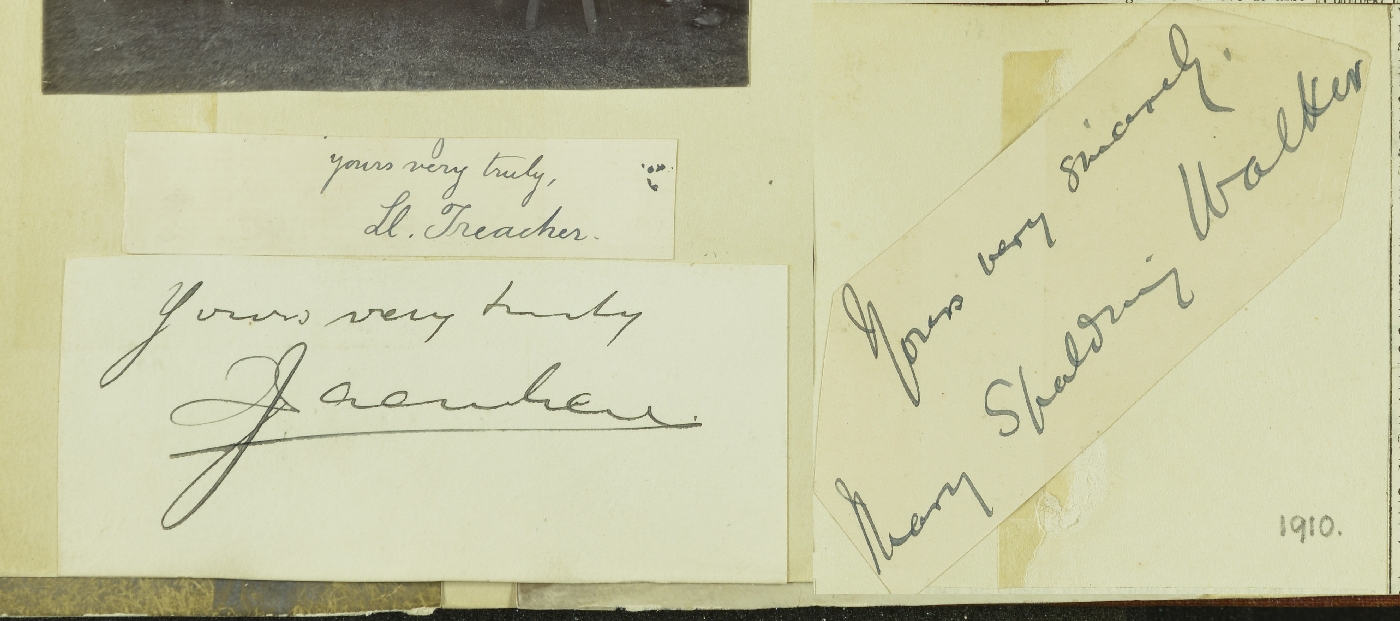 yours very truly,
Ll. Treacher.
Yours very truly
Yours very sincerely.
Mary Spalding Walker
1910.